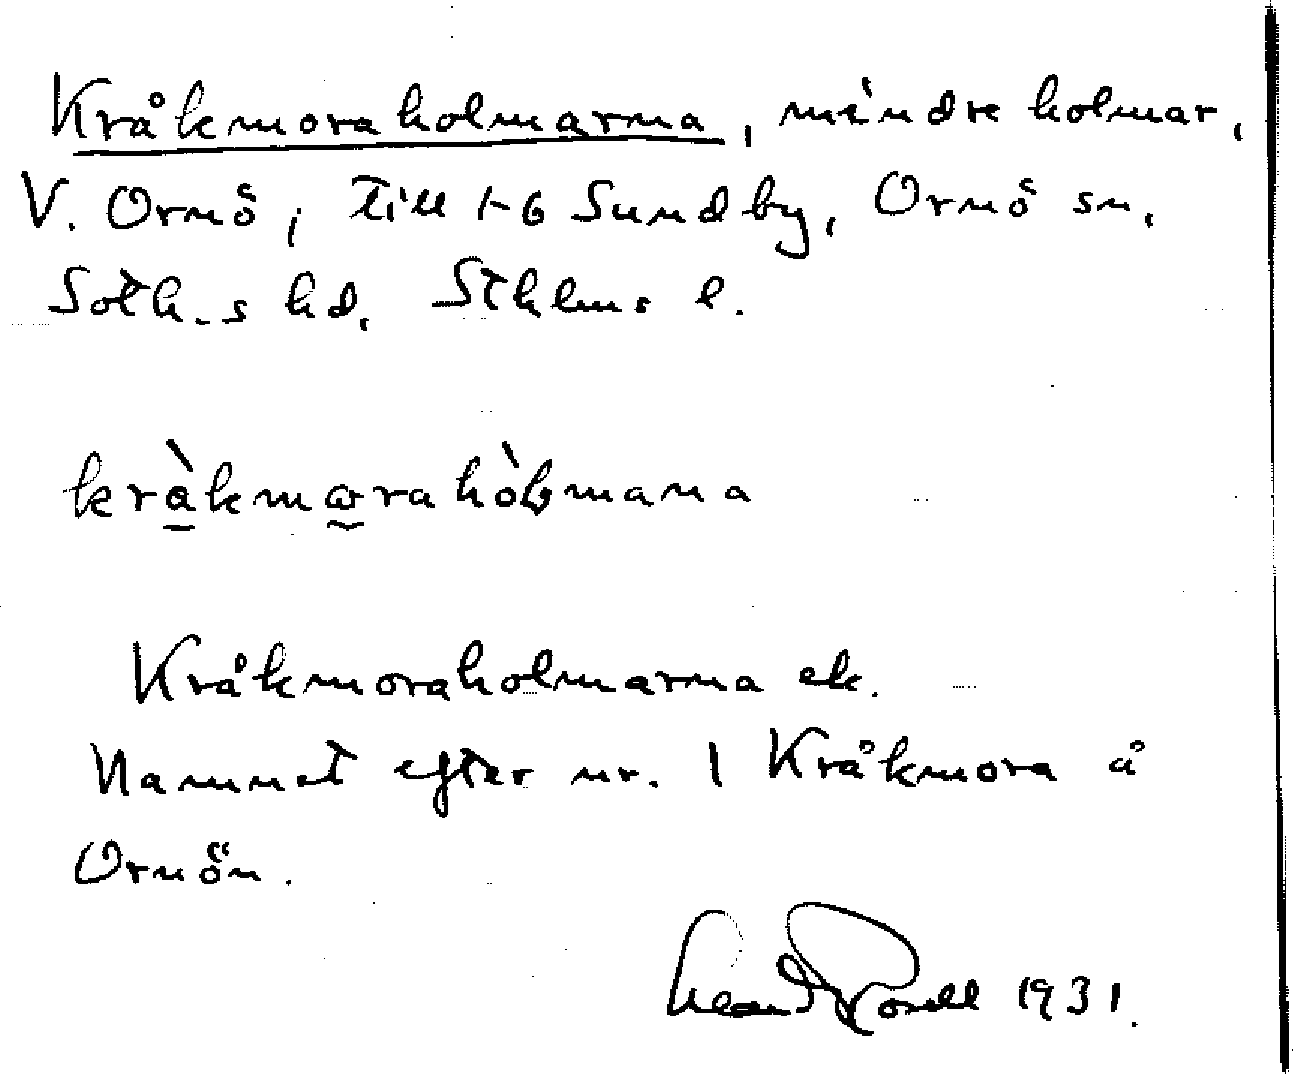 Kråkmoraholmarna, mindre holmar,
V. Ornö, till 1-6 Sundby, Ornö sn,
Soth-s hd, Sthlms l.
Kråkmoraholmarna ek.
Namnet efter nr. 1 Kråkmora å
Ornön.
1931.